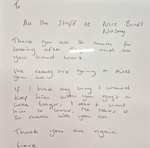 To
All the Staff at Mrs Bunts
Nursery
Thank you so much for
looking after and all
your hard work.
We really are going to miss
you all
If I had my way I would
keep him with you guys a
little longer, I don't want
him to leave, he loves it
so much with you all.
Thank you once again
Love